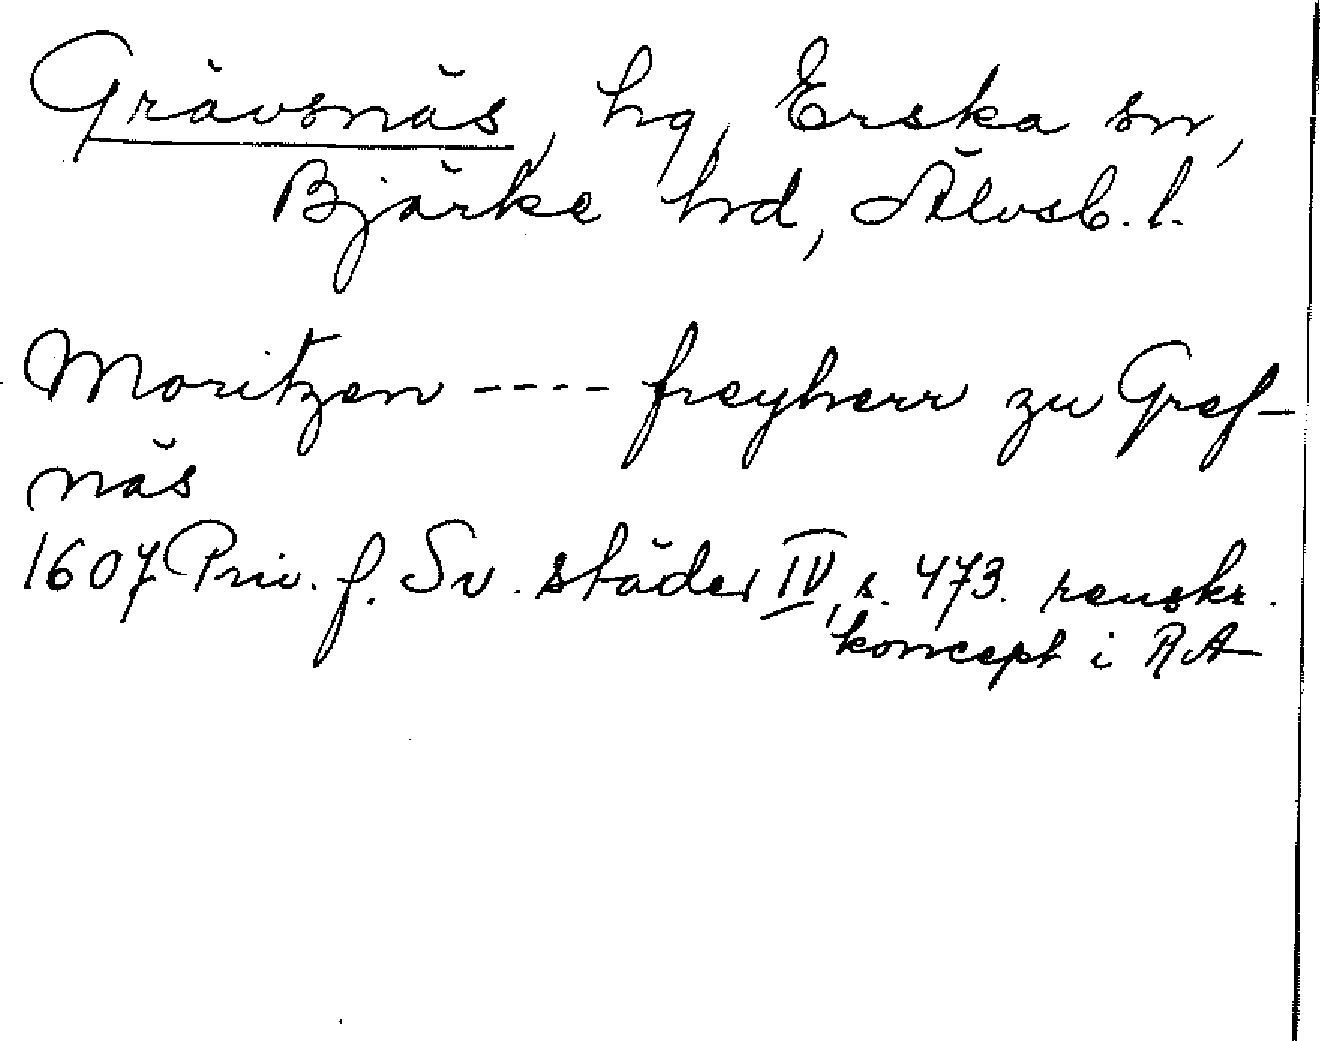 Grävsnäs, hg, Erska sn,
Bjärke hrd, Älvsb. l.
Moritzen ---- freyherr zu Gref-
näs
1607 Priv. f. Sv. städer IV, s. 473. renskr.
koncept i RA